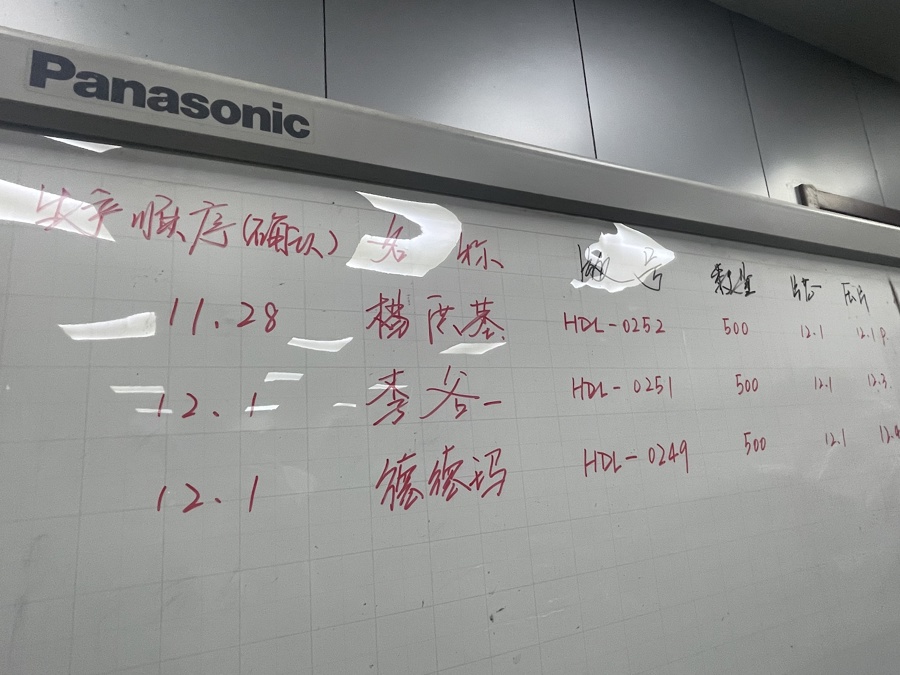 Panasonic
生产顺序(确认) 名称 版号 数量 片芯 压片
11.28 楊洪基 HDL-0252 500 12.1 12.1P.
12.1 李谷一 HDL-0251 500 12.1 12.3.
12.1 德德玛 HDL-0249 500 12.1 12.4